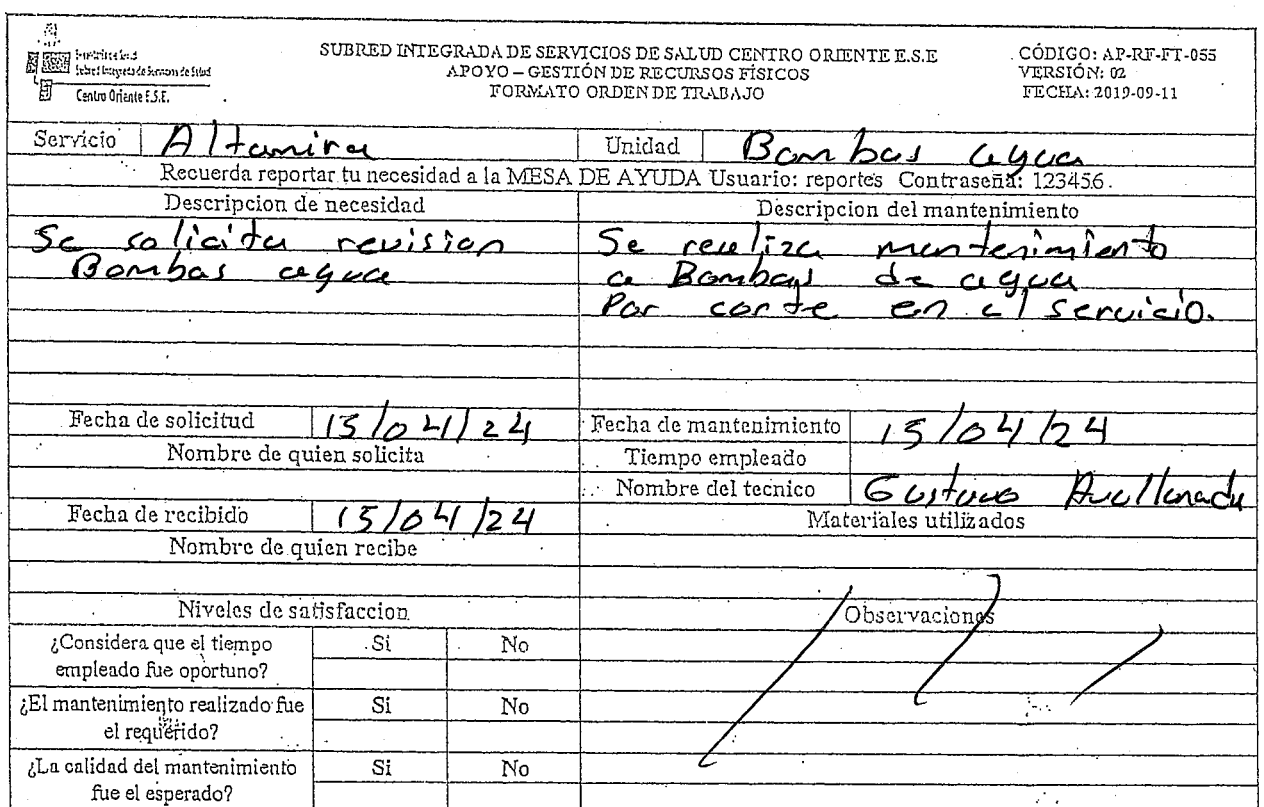 Subred Integrada de Servicios de Salud
Centro Oriente E.S.E.
SUBRED INTEGRADA DE SERVICIOS DE SALUD CENTRO ORIENTE E.S.E
APOYO – GESTIÓN DE RECURSOS FÍSICOS
FORMATO ORDEN DE TRABAJO
CÓDIGO: AP-RF-FT-055
VERSIÓN: 02
FECHA: 2019-09-11
Servicio Altamira Unidad Bombas agua
Recuerda reportar tu necesidad a la MESA DE AYUDA Usuario: reportes Contraseña: 123456.
Descripcion de necesidad
Se solicita revision
Bombas agua
Descripcion del mantenimiento
Se realiza mantenimiento
a Bombas de agua
Por corte en el servicio.
Fecha de solicitud 15/04/24
Nombre de quien solicita
Fecha de mantenimiento 15/04/24
Tiempo empleado
Nombre del tecnico Gustavo Avellaneda
Fecha de recibido 15/04/24
Nombre de quien recibe
Materiales utilizados
Niveles de satisfaccion
Observaciones
¿Considera que el tiempo
empleado fue oportuno?
Si No
¿El mantenimiento realizado fue
el requerido?
Si No
¿La calidad del mantenimiento
fue el esperado?
Si No